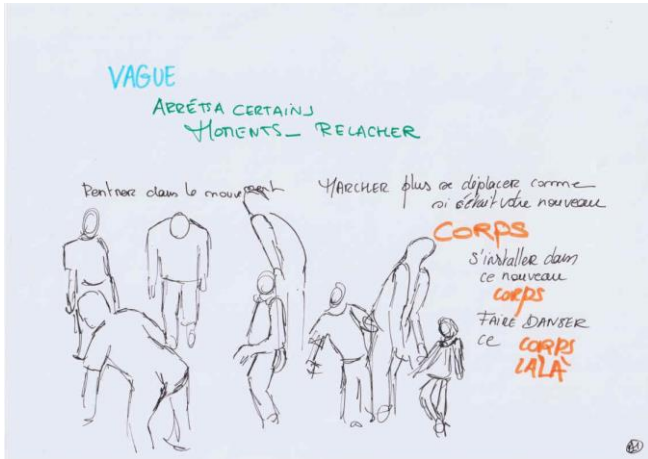 VAGUE
ARRÉT À CERTAINS
MOMENTS_ RELACHER
Rentrer dans le mouvement
MARCHER plus se déplacer comme
si c'était votre nouveau
CORPS
s'installer dans
ce nouveau
CORPS
FAIRE DANSER
ce CORPS
LALÀ